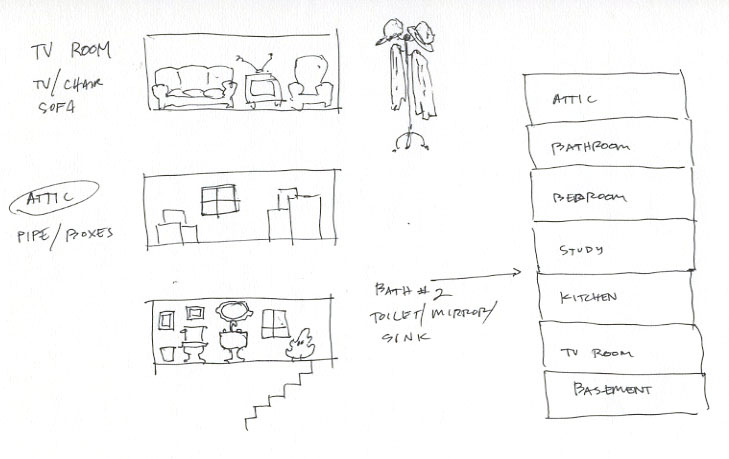 TV ROOM
TV/CHAIR
SOFA
ATTIC
PIPE/BOXES
BATH #2
TOILET/MIRROR/
SINK
ATTIC
BATHROOM
BEDROOM
STUDY
KITCHEN
TV ROOM
BASEMENT